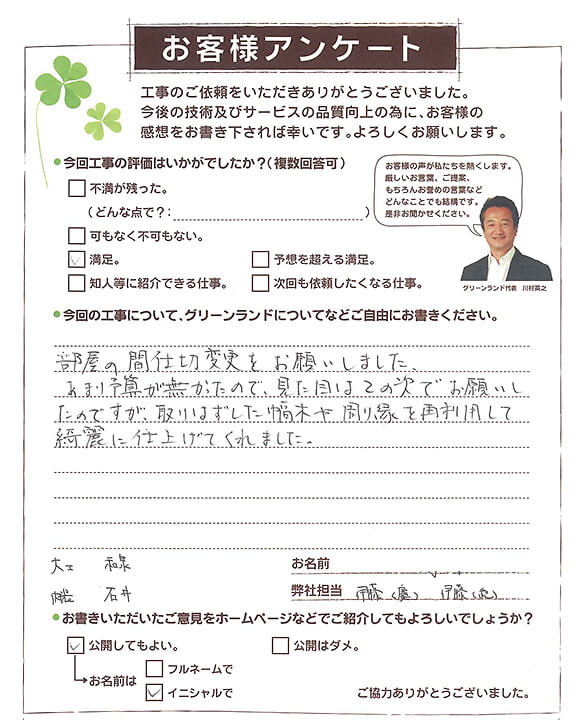 お客様アンケート
工事のご依頼をいただきありがとうございました。
今後の技術及びサービスの品質向上の為に、お客様の
感想をお書き下されば幸いです。よろしくお願いします。
今回工事の評価はいかがでしたか？（複数回答可）
不満が残った。
（どんな点で？：　）
可もなく不可もない。
満足。
予想を超える満足。
知人等に紹介できる仕事。
次回も依頼したくなる仕事。
お客様の声が私たちを熱くします。
厳しいお言葉、ご提案、
もちろんお誉めの言葉など
どんなことでも結構です。
是非お聞かせください。
グリーンランド代表　川村英之
今回の工事について、グリーンランドについてなどご自由にお書きください。
部屋の間仕切変更をお願いしました、
あまり予算が無かたので、見た目は二の次でお願いし
たのですが、取りはずした幅木や廻り縁を再利用して
綺麗に仕上げてくれました。
大工　和泉
石井
お名前
弊社担当　伊藤（慶）　伊藤
お書きいただいたご意見をホームページなどでご紹介してもよろしいでしょうか？
公開してもよい。
公開はダメ。
お名前は
フルネームで
イニシャルで
ご協力ありがとうございました。